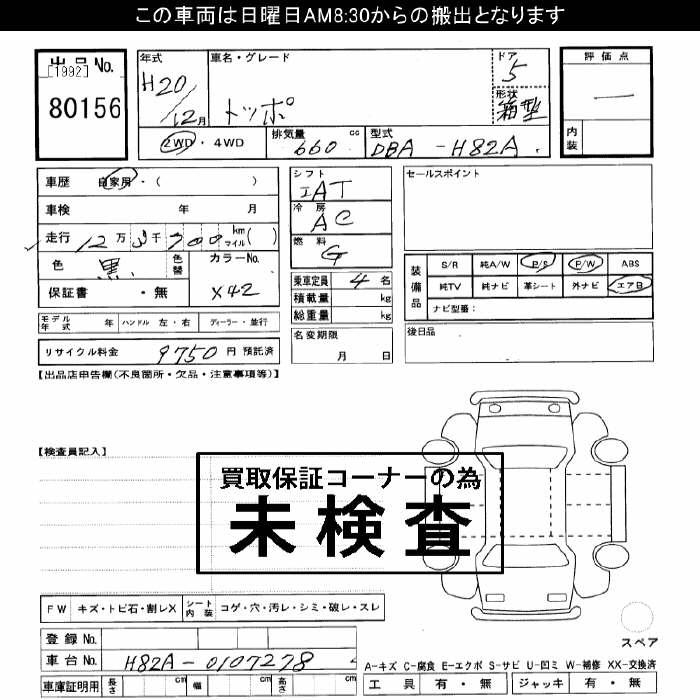 この車両は日曜日AM8:30からの搬出となります
出品No.
[1992]
80156
年式
H20/12月
車名・グレード
トッポ
ドア
5
形状
箱型
評価点
―
内装
2WD・4WD
排気量
660 cc
型式
DBA-H82A
車歴 自家用・( )
車検 年 月
走行 12万3千700 km マイル( )
色 黒 色替
カラーNo.
X42
保証書 ・無
モデル年式 年 ハンドル 左・右 ディーラー・並行
リサイクル料金 9750 円 預託済
シフト
IAT
冷房
AC
燃料
G
乗車定員 4 名
積載量 kg
総重量 kg
名変期限
月 日
セールスポイント
装備品
S/R 純A/W P/S P/W ABS
純TV 純ナビ 革シート 外ナビ エアB
ナビ型番:
後日品
【出品店申告欄(不良箇所・欠品・注意事項等)】
【検査員記入】
買取保証コーナーの為
未検査
FW キズ・トビ石・割レX シート内装 コゲ・穴・汚レ・シミ・破レ・スレ
登録No.
車台No. H82A-0107278
車庫証明用 長さ cm 幅 cm 高さ cm
スペア
A-キズ C-腐食 E-エクボ S-サビ U-凹ミ W-補修 XX-交換済
工具 有・無 ジャッキ 有・無